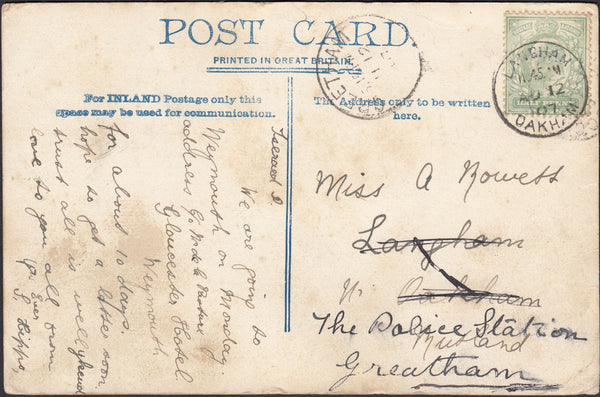 POST CARD.
PRINTED IN GREAT BRITAIN.
For INLAND Postage only this
space may be used for communication.
The Address only to be written
here.
We are going to
Weymouth on Monday
address
Gloucester Hotel
Weymouth
for about 10 days,
hope to get a letter soon
trust all is well
love to you all from
Yrs Ever
Miss A Rowett
Langham
Nr Oakham
Rutland
The Police Station
Greatham
LANGHAM
12
07
OAKHAM